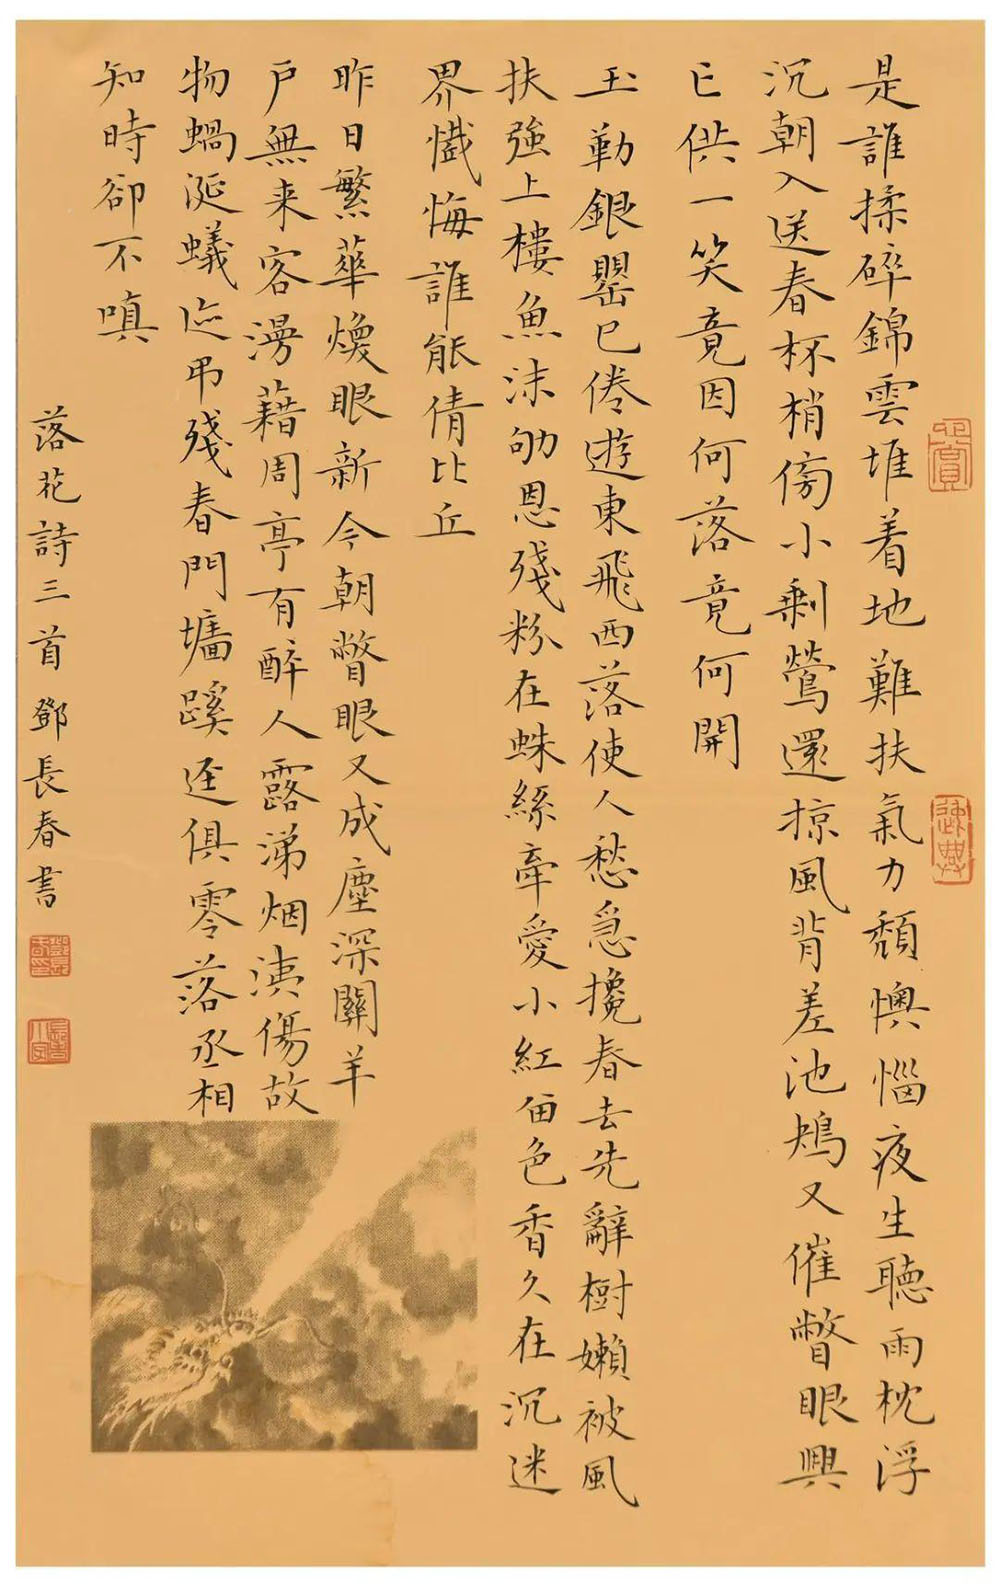 是誰揉碎錦雲堆着地難扶氣力頹懊惱夜生聽雨枕浮
沉朝入送春杯梢傍小剩鶯還掠風背差池鴂又催瞥眼興
亡供一笑竟因何落竟何開
玉勒銀罌已倦遊東飛西落使人愁急攙春去先辭樹嬾被風
扶強上樓魚沫呴恩殘粉在蛛絲牽愛小紅留色香久在沉迷
界懺悔誰能倩比丘
昨日繁華煥眼新今朝瞥眼又成塵深關羊
戶無来客漫藉周亭有醉人露涕烟洟傷故
物蝸涎蟻迹弔殘春門墻蹊逕俱零落丞相
知時卻不嗔
落花詩三首鄧長春書